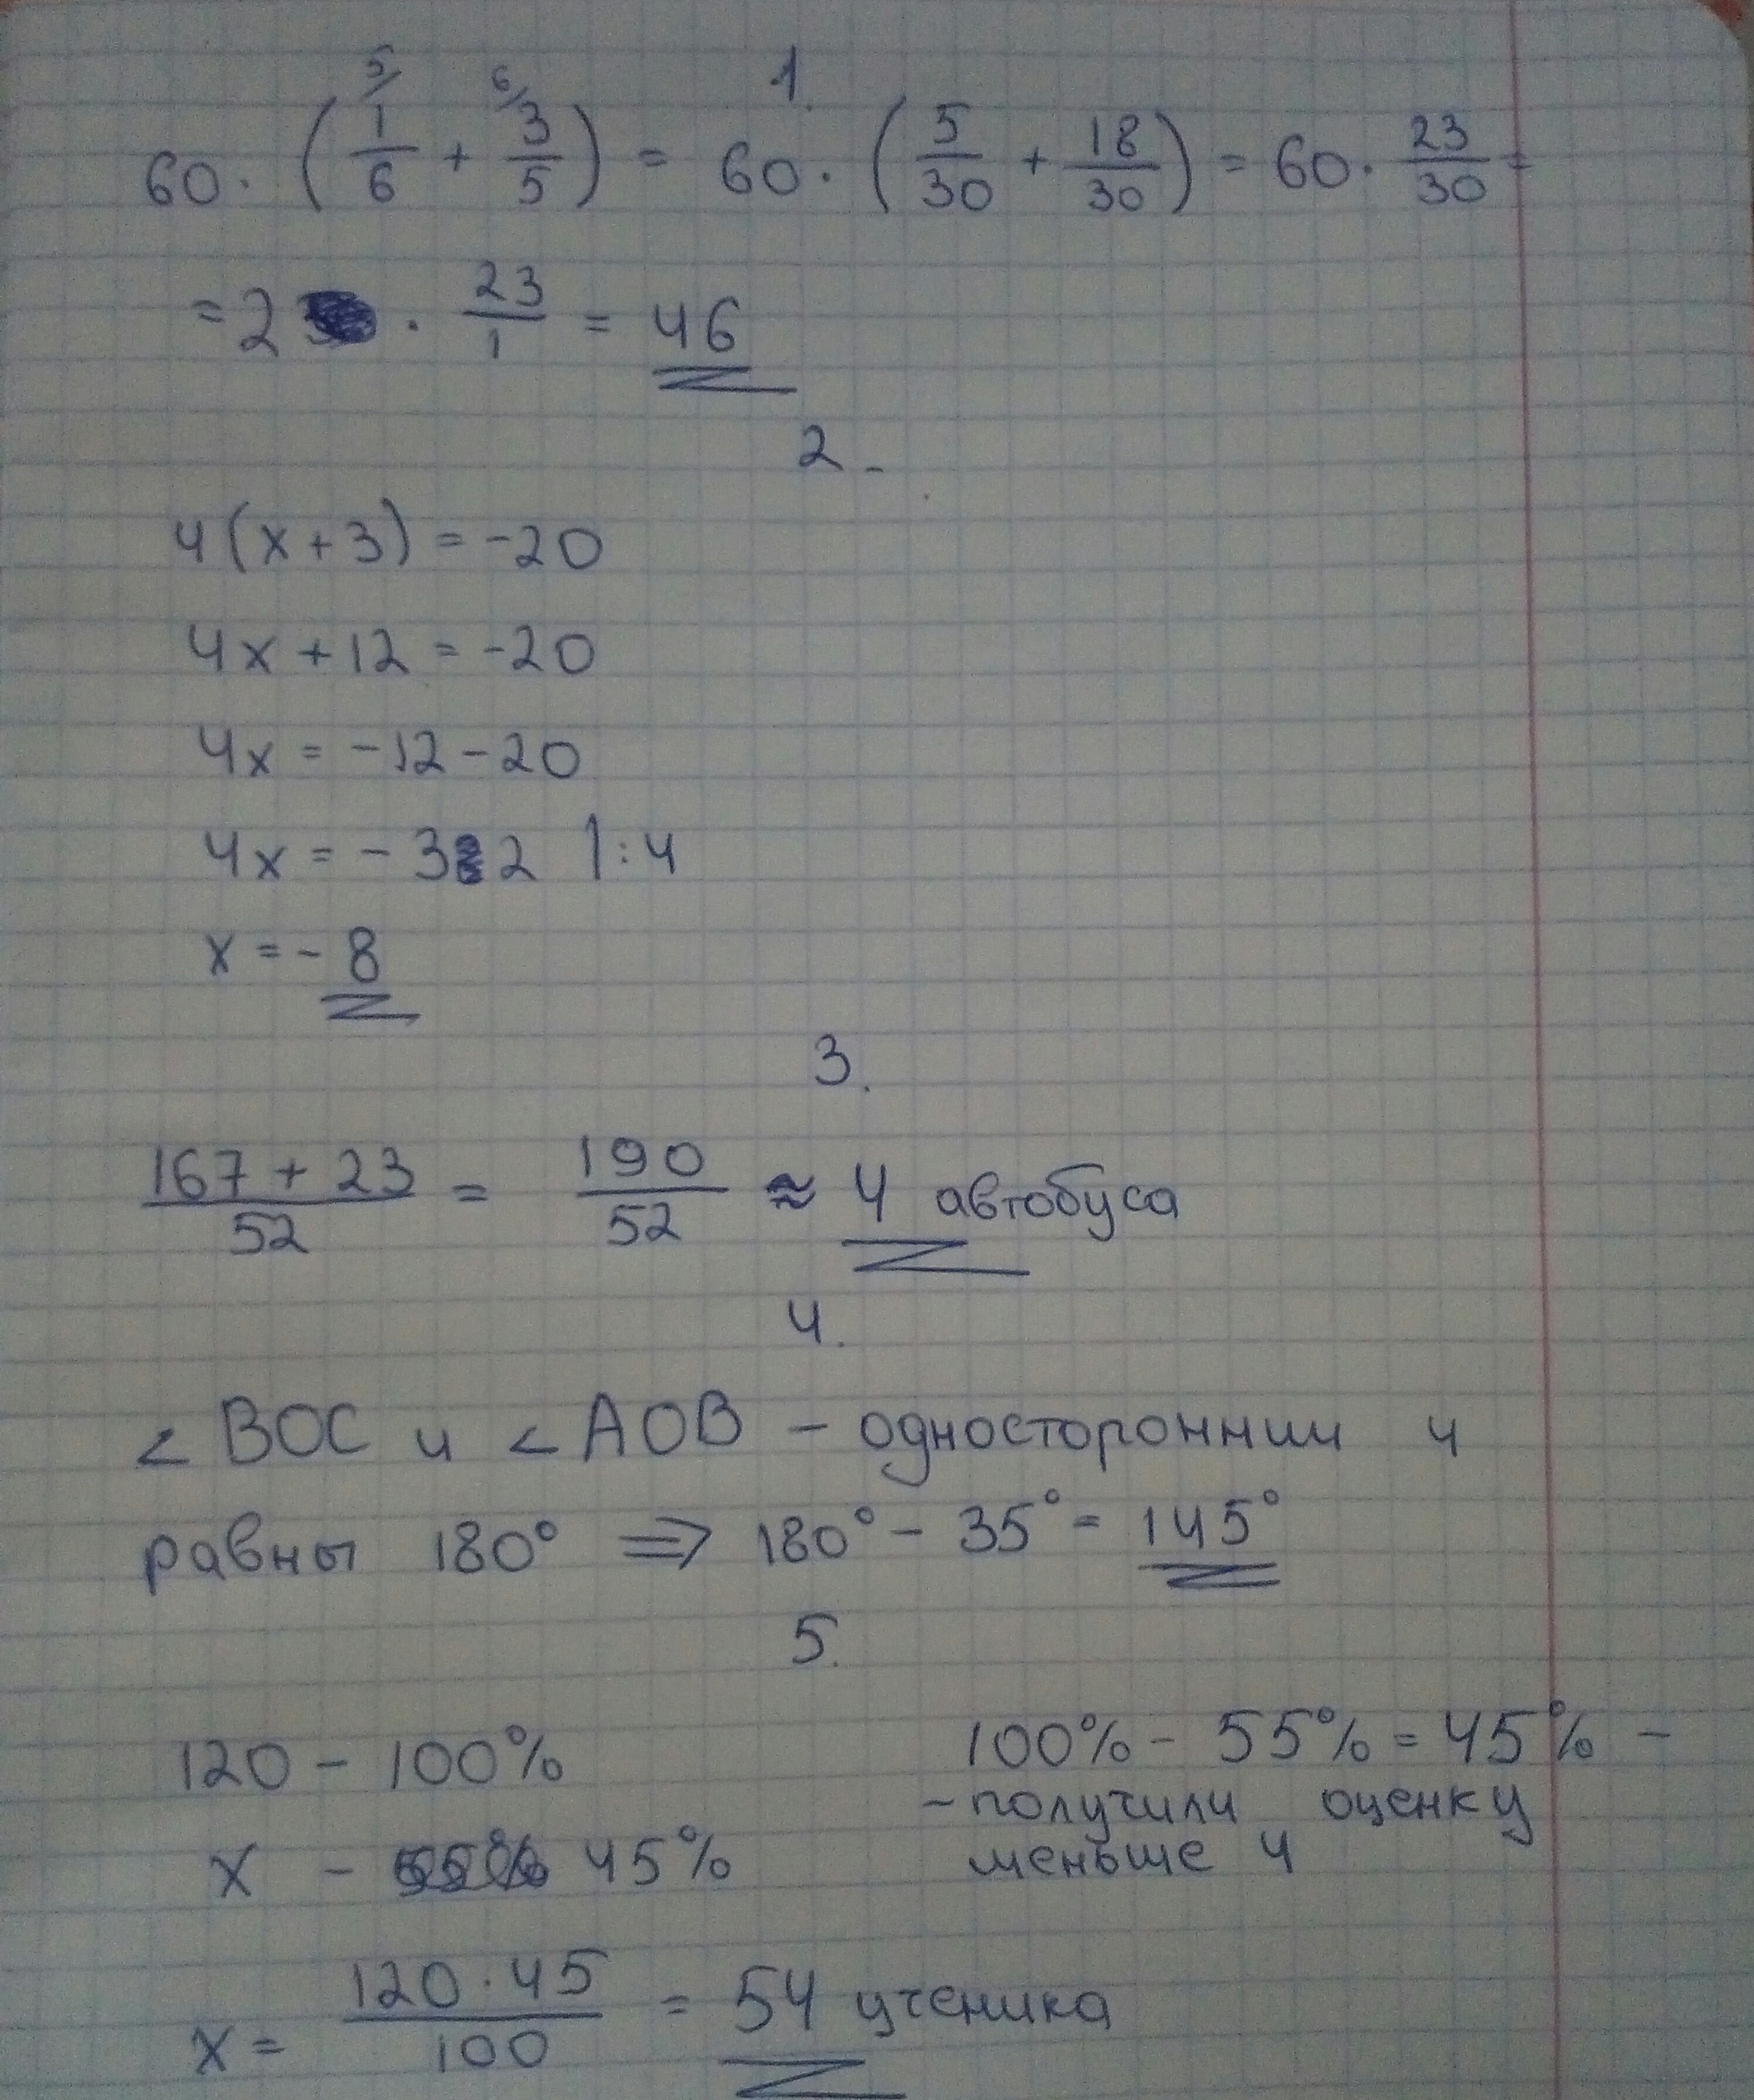 1.
60 · (5/ 1/6 + 6/ 3/5) = 60 · (5/30 + 18/30) = 60 · 23/30 =
= 2 · 23/1 = 46
2.
4(x+3) = -20
4x + 12 = -20
4x = -12 - 20
4x = - 32 |:4
x = - 8
3.
167 + 23/52 = 190/52 ≈ 4 автобуса
4.
∠ BOC и ∠ AOB - одностороннии и
равны 180° ⇒ 180° - 35° = 145°
5.
120 - 100% 100% - 55% = 45% -
- получили оценку
x - 45% меньше 4
x = 120 · 45/100 = 54 ученика